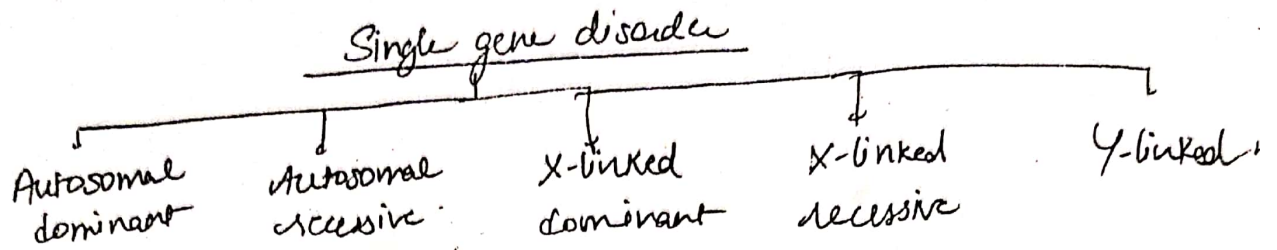 Single gene disorder
Autosomal
dominant
Autosomal
recessive.
X-linked
dominant
X-linked
recessive
Y-linked.